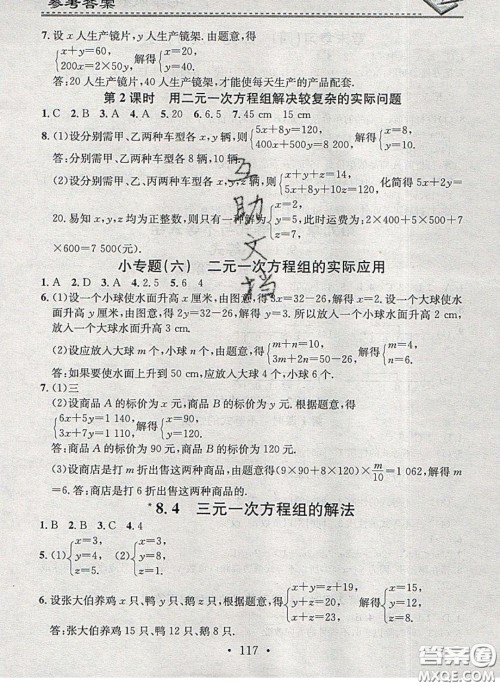 参考答案
7. 设 x 人生产镜片, y 人生产镜架. 由题意, 得
{x+y=60, 200x=2×50y. 解得 {x=20, y=40.
答: 20 人生产镜片, 40 人生产镜架, 才能使每天生产的产品配套.
第 2 课时 用二元一次方程组解决较复杂的实际问题
1. C 2. B 3. A 4. A 5. 20 6. 6.5 7. 45 cm 15 cm
8. (1)设分别需甲、乙两种车型各 x, y 辆, 则 {5x+8y=120, 400x+500y=8 200. 解得 {x=8, y=10.
答: 分别需甲、乙两种车型各 8 辆, 10 辆.
(2)设分别需甲、乙、丙两种车型各 x, y, z 辆, 则 {x+y+z=14, 5x+8y+10z=120, 化简得 5x+2y=
20. 易知 x, y, z 均为正整数, 则只有一种解为 {x=2, y=5, z=7. 此时运费为: 2×400+5×500+7
×600=7 500(元).
小专题(六) 二元一次方程组的实际应用
1. A 2. D 3. A 4. 2 5. 6 4
6. (1)设一个小球使水面升高 x 厘米, 由图意, 得 3x=32-26, 解得 x=2. 设一个大球使水
面升高 y 厘米, 由图意, 得 2y=32-26, 解得 y=3. 所以放入一个小球水面升高 2 cm, 放入一
个大球水面升高 3 cm.
(2)设应放入大球 m 个, 小球 n 个. 由题意, 得 {m+n=10, 3m+2n=50-26. 解得 {m=4, n=6.
答: 如果要使水面上升到 50 cm, 应放入大球 4 个, 小球 6 个.
7. (1)三
(2)设商品 A 的标价为 x 元, 商品 B 的标价为 y 元. 根据题意, 得
{6x+5y=1 140, 3x+7y=1 110. 解得 {x=90, y=120.
答: 商品 A 的标价为 90 元, 商品 B 的标价为 120 元.
(3)设商店是打 m 折出售这两种商品, 由题意得(9×90+8×120)×m/10=1 062, 解得 m
=6. 答: 商店是打 6 折出售这两种商品的.
*8.4 三元一次方程组的解法
1. B 2. B 3. C 4. 4
5. (1) {x=3, y=4, z=5. (2) {x=3, y=8, z=1.
答: 张大伯养鸡 15 只、鸭 12 只、鹅 8 只.
· 117 ·
互助文档
答案圈
MXQE.COM